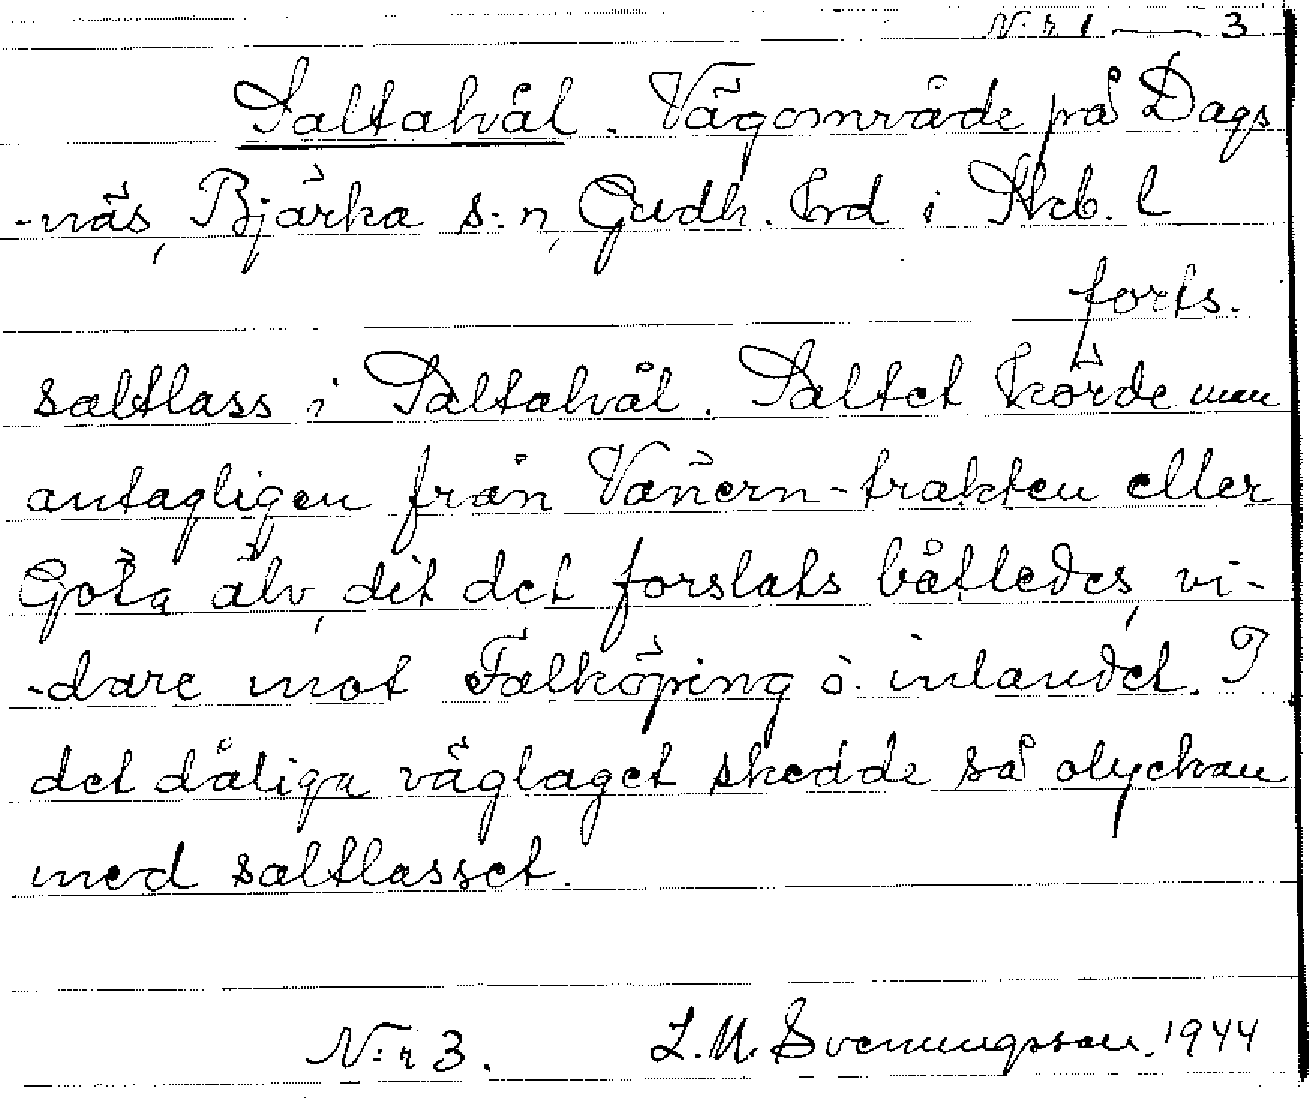 N:r 1 — 3
Saltahvål. Vägområde på Dags
-näs, Bjärka s:n, Gudh. hrd i Skb. l
forts.
saltlass i Saltahvål. Saltet körde man
antagligen från Vänern-trakten eller
Göta älv, dit det forslats båtledes, vi-
-dare mot Falköping o. inlandet. I
det dåliga väglaget skedde så olyckan
med saltlasset.
N:r 3. L. M. Svenungsson. 1944